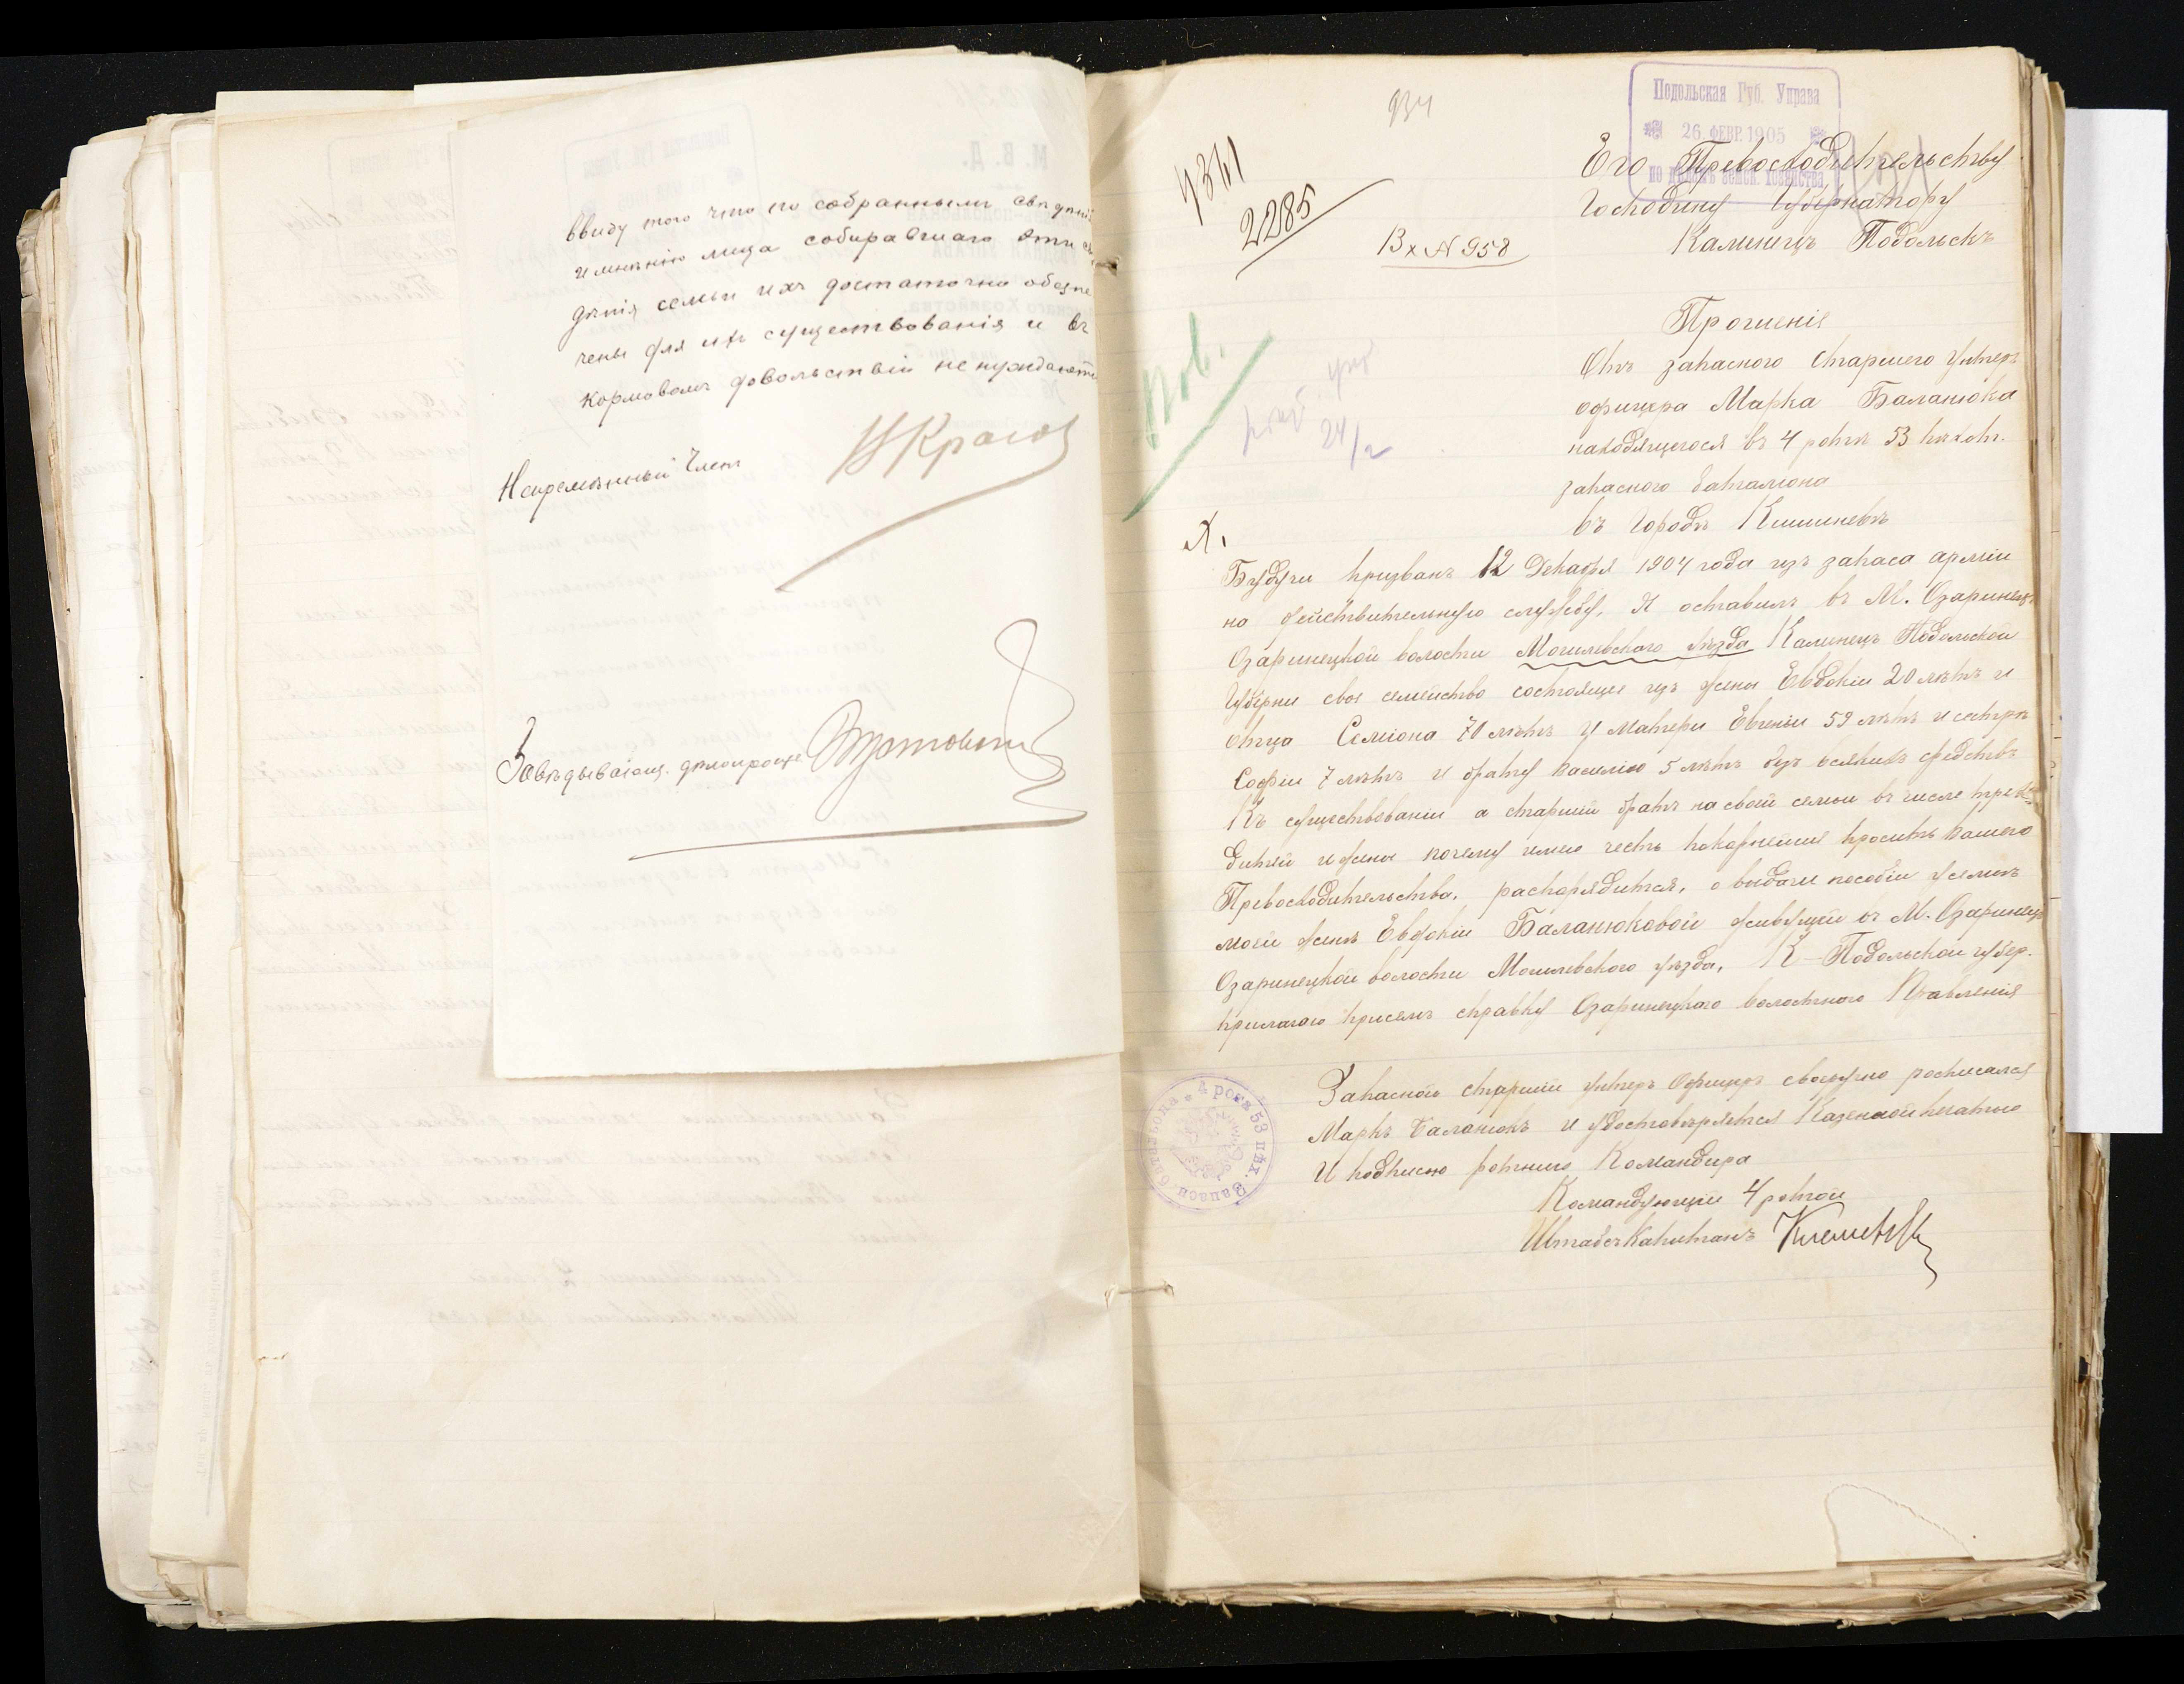 ввиду того что по собраннымъ свѣдѣні
и мнѣнію лица собиравшаго эти свѣ
дѣнія семьи ихъ достаточно обезпе
чены для ихъ существованія и въ
кормовомъ довольствіи не нуждаются
Непремѣнный Членъ
Завѣдывающ. дѣлопроизв.
934
Подольская Губ. Управа
26 ФЕВР. 1905
7361
2285
Вх № 958
Его Превосходительству
Господину Губернатору
Каминицъ Подольскъ
Прошеніе
Отъ запасного старшего унтеръ
офицера Марка Баланюка
находящегося въ 4 ротѣ 53 пѣхот.
запасного баталиона
въ городѣ Кишиневѣ
24/2
Будучи призванъ 12 Декабря 1904 года изъ запаса арміи
на действительную службу, Я оставилъ въ М. Озаринецъ
Озаринецкой волости Могилевского уѣзда Каминецъ Подольской
Губерни свое семейство состоящее изъ жены Евдокіи 20 лѣтъ и
отца Семіона 70 лѣтъ и матери Евгеніи 59 лѣтъ и сестрѣ
Софіи 7 лѣтъ и брату Василію 5 лѣтъ безъ всякихъ средствъ
Къ существованіи а старшій братъ на своій семьи въ числе трехъ
дитей и жены почему имею честь покарнейше просить Вашего
Превосходительства, распорядится, о выдачи пособіи уземыъ
моей женѣ Евдокіи Баланюковой живущей въ М. Озаринецъ
Озаринецкой волости Могилевского уѣзда, К-Подольской губер.
прилагаю присемъ справку Озаринецкого волостного Правленія
Запасной старшій унтеръ Офицеръ своеручно росписался
Маркъ Баланюкъ и удостоверяется Казенной печатью
И подписью ротного Командира
Командующій 4 ротой
Штабсъ Капитанъ
4 рота 53 пѣх. Запасн. баталіона